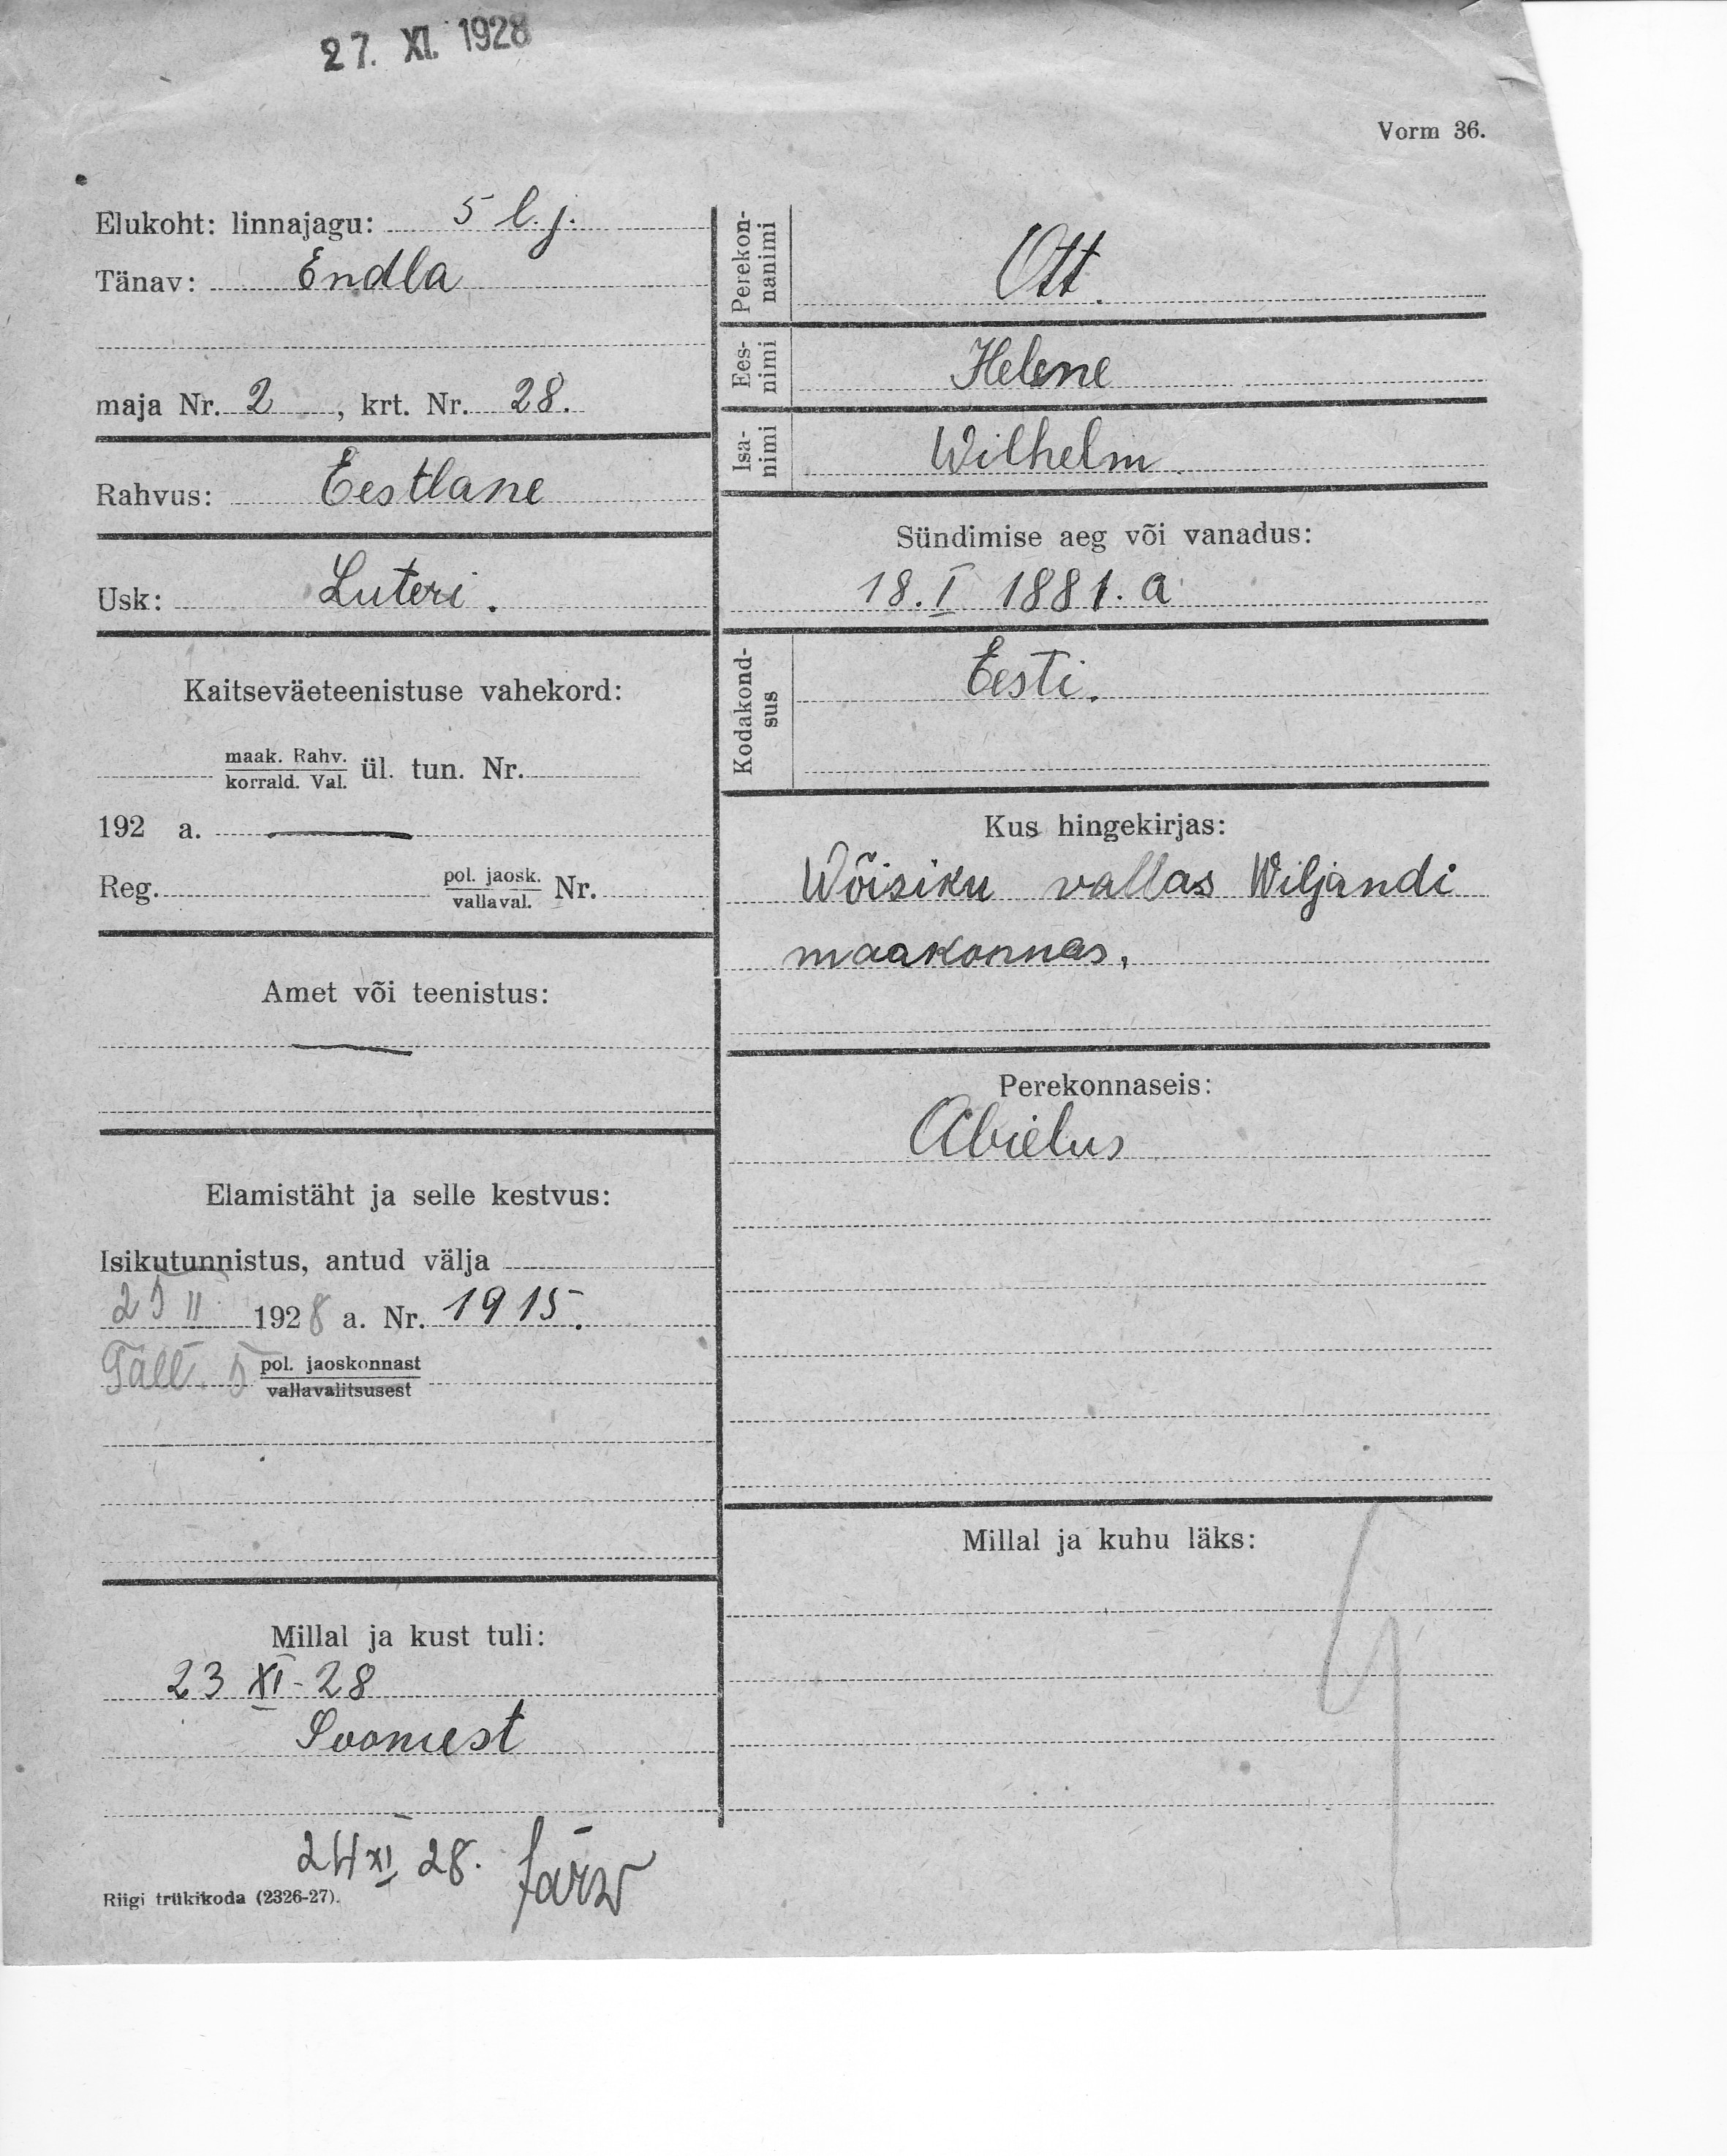 27. XI. 1928
Vorm 36.
Elukoht: linnajagu: 5 l. j.
Tänav: Endla
maja Nr. 2, krt. Nr. 28.
Rahvus: Eestlane
Usk: Luteri.
Kaitseväeteenistuse vahekord:
maak. Rahv.
korrald. Val. ül. tun. Nr.
192 a. —
Reg. pol. jaosk.
vallaval. Nr.
Amet või teenistus:
—
Elamistäht ja selle kestvus:
Isikutunnistus, antud välja
II 1928 a. Nr. 1915.
Tall. 5 pol. jaoskonnast
vallavalitsusest
Millal ja kust tuli:
23 XI - 28
Soomest
24 XI 28.
Riigi trükikoda (2326-27).
Perekon-
nanimi
Ott.
Ees-
nimi
Helene
Isa-
nimi
Wilhelm.
Sündimise aeg või vanadus:
18. I 1881. a
Kodakond-
sus
Eesti.
Kus hingekirjas:
Wõisiku vallas Wiljandi
maakonnas.
Perekonnaseis:
Abielus
Millal ja kuhu läks: